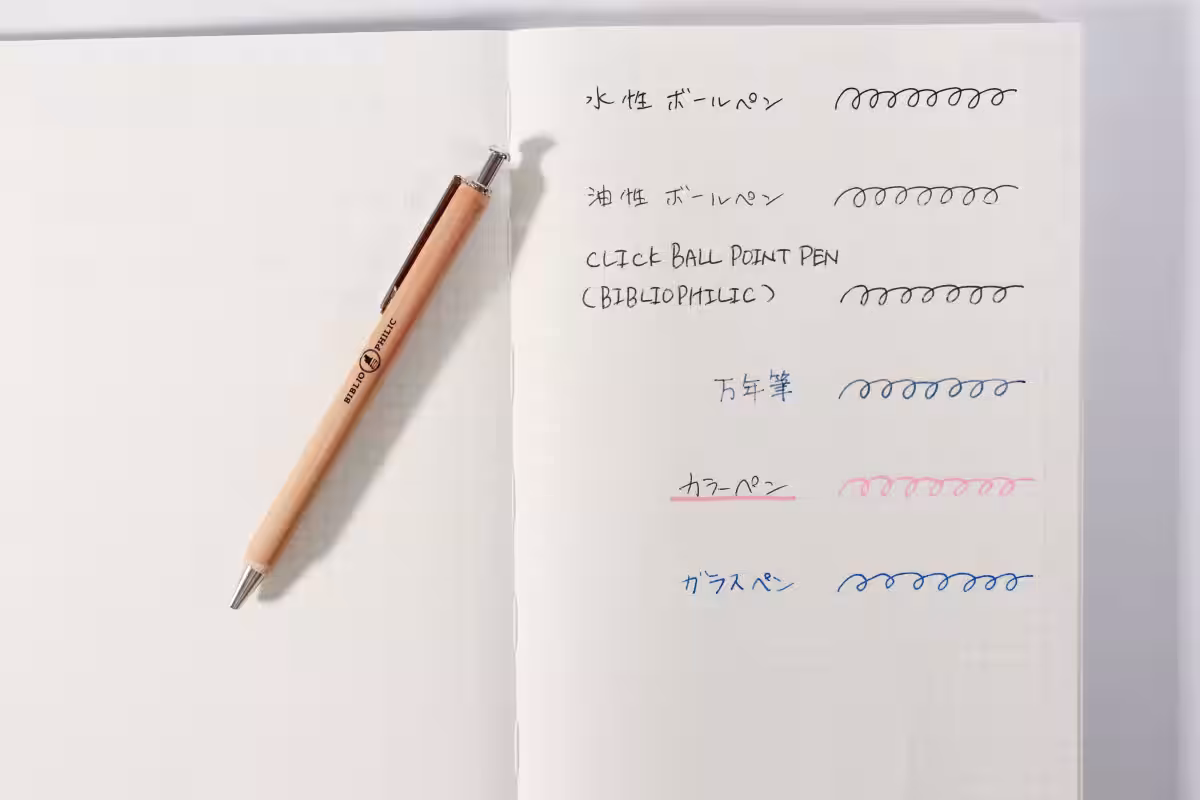 水性 ボールペン
油性 ボールペン
CLICK BALL POINT PEN
(BIBLIOPHILIC)
万年筆
カラーペン
ガラスペン
BIBLIOPHILIC